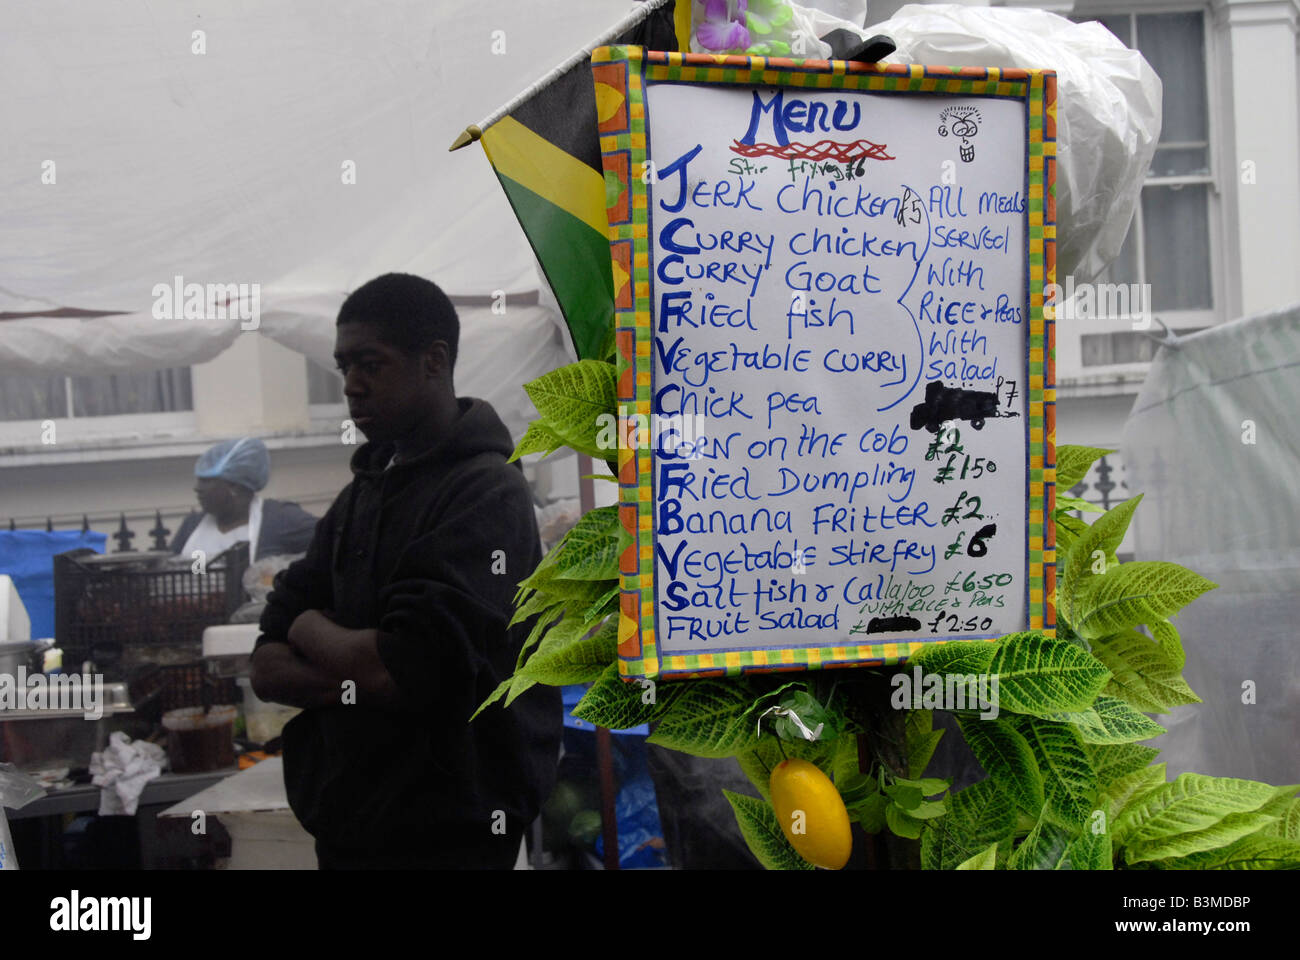 Menu
Stir fry veg £6
JERK Chicken £5
CURRY chicken
CURRY Goat
FRied fish
Vegetable CURRY
Chick pea
CORN on the Cob £2
FRied Dumpling £1.50
Banana FRITTER £2
Vegetable Stirfry £6
Salt fish & Callaloo £6.50
With RICE & Peas
FRUIT Salad £ £2:50
All meals
SERVED
With
RICE & Peas
With
Salad
£7
alamy
alamy
Image ID: B3MDBP
www.alamy.com